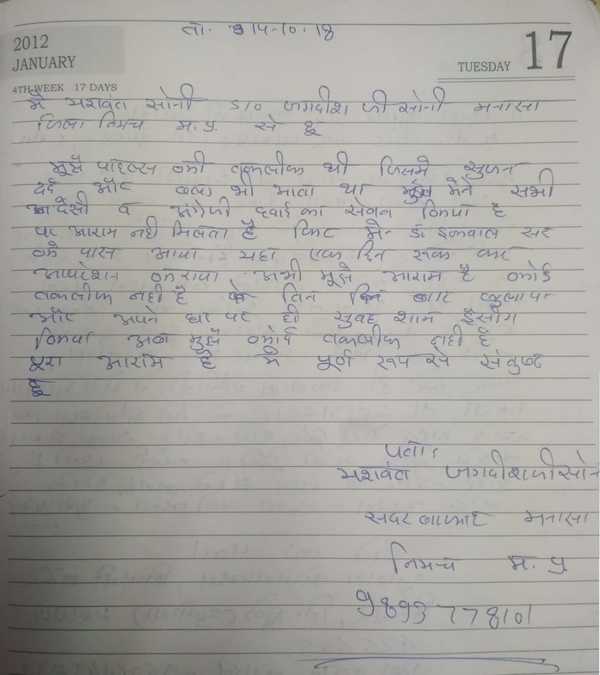 ता. 14-10-18
2012
JANUARY
4TH WEEK 17 DAYS
TUESDAY 17
मैं यशवंत सोनी S/O जगदीश जी सोनी मनासा
जिला निमच म. प्र. से हूं
मुझे पाइल्स की तकलीफ थी जिसमें सुजन
दर्द और ब्लड भी आता था मैने सभी
देसी व अंग्रेजी दवाई का सेवन किया है
पर आराम नही मिलता है फिर मैं डॉ इकबाल सर
के पास आया यहां एक दिन रूक कर
आपरेशन कराया अभी मुझे आराम है कोई
तकलीफ नही है तिन दिन बाद बुलाया
और अपने घर पर ही सुबह शाम ड्रेसींग
किया अब मुझे कोई तकलीफ नही है
पुरा आराम है मै पूर्ण रूप से संतुष्ट
हूं
पता:
यशवंत जगदीश जी सोनी
सदर बाजार मनासा
निमच म. प्र
9893778101